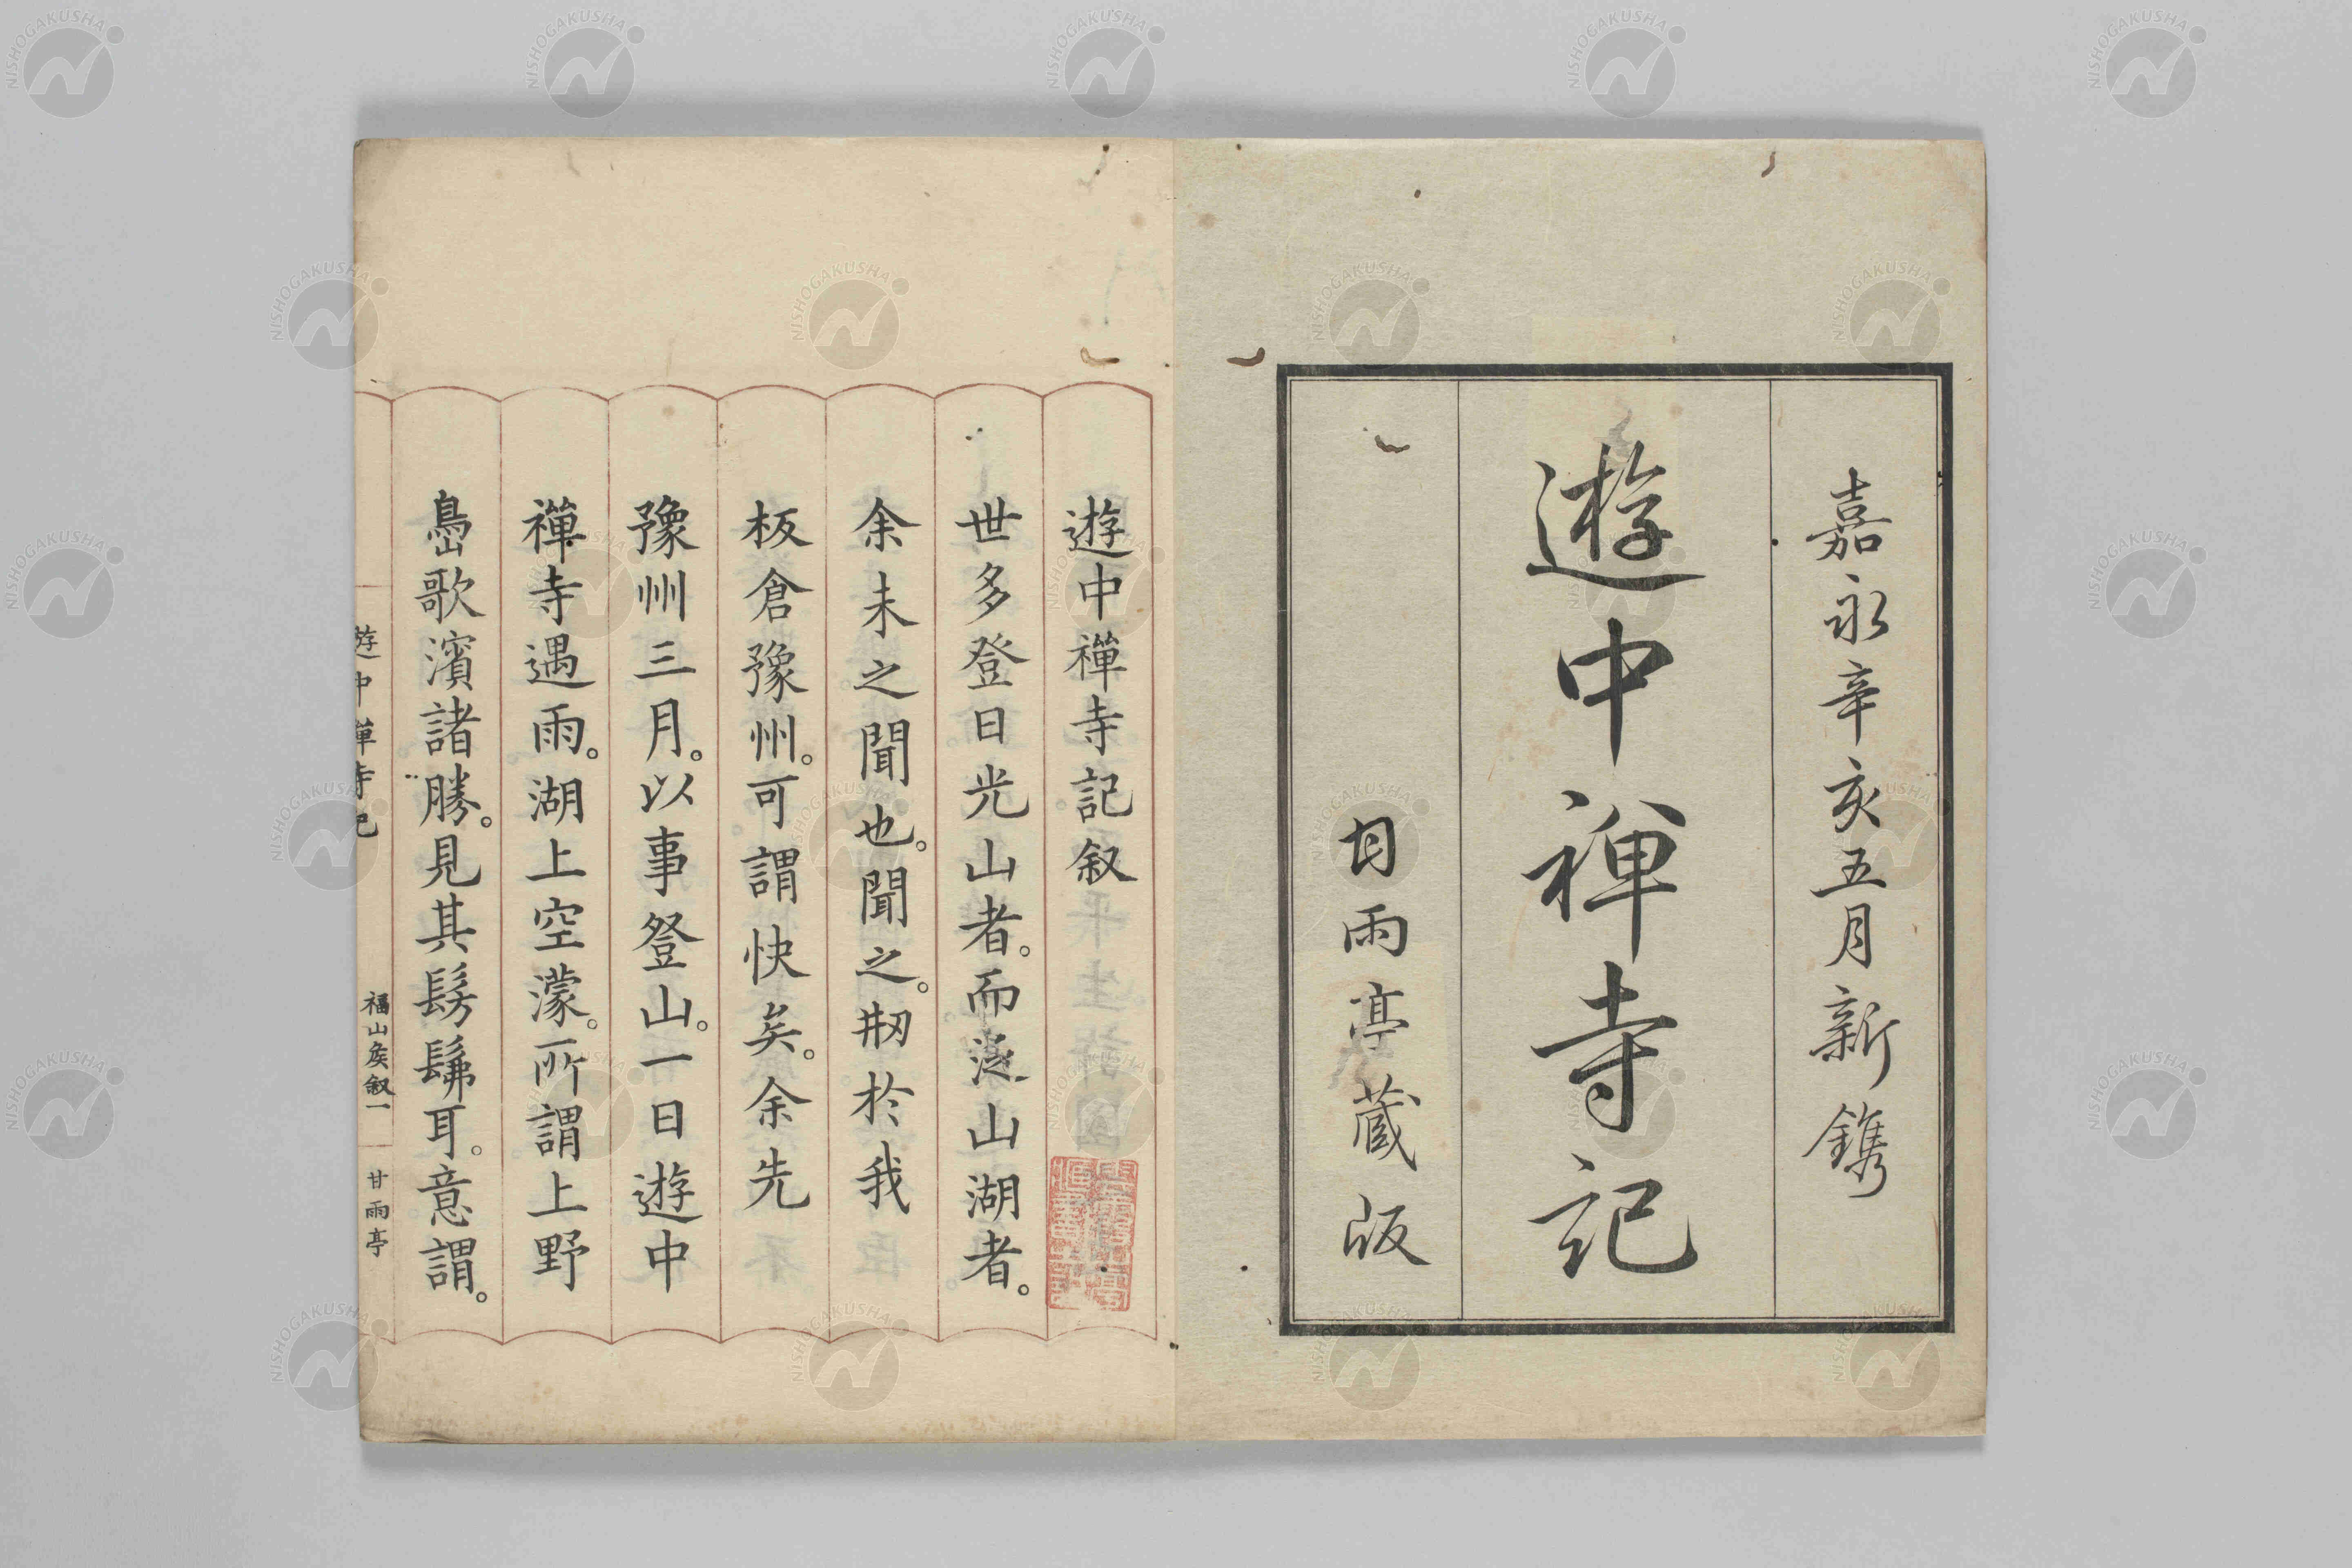 嘉永辛亥五月新鐫
遊中禅寺記
甘雨亭蔵版
遊中禪寺記叙
世多登日光山者。而泛山湖者。
余未之聞也。聞之。刱於我
板倉豫州。可謂快矣。余先
豫州三月。以事登山。一日遊中
禪寺遇雨。湖上空濛。所謂上野
嶌歌濱諸勝。見其髣髴耳。意謂。
遊中禪寺記
福山矦叙一
甘雨亭
NISHOGAKUSHA